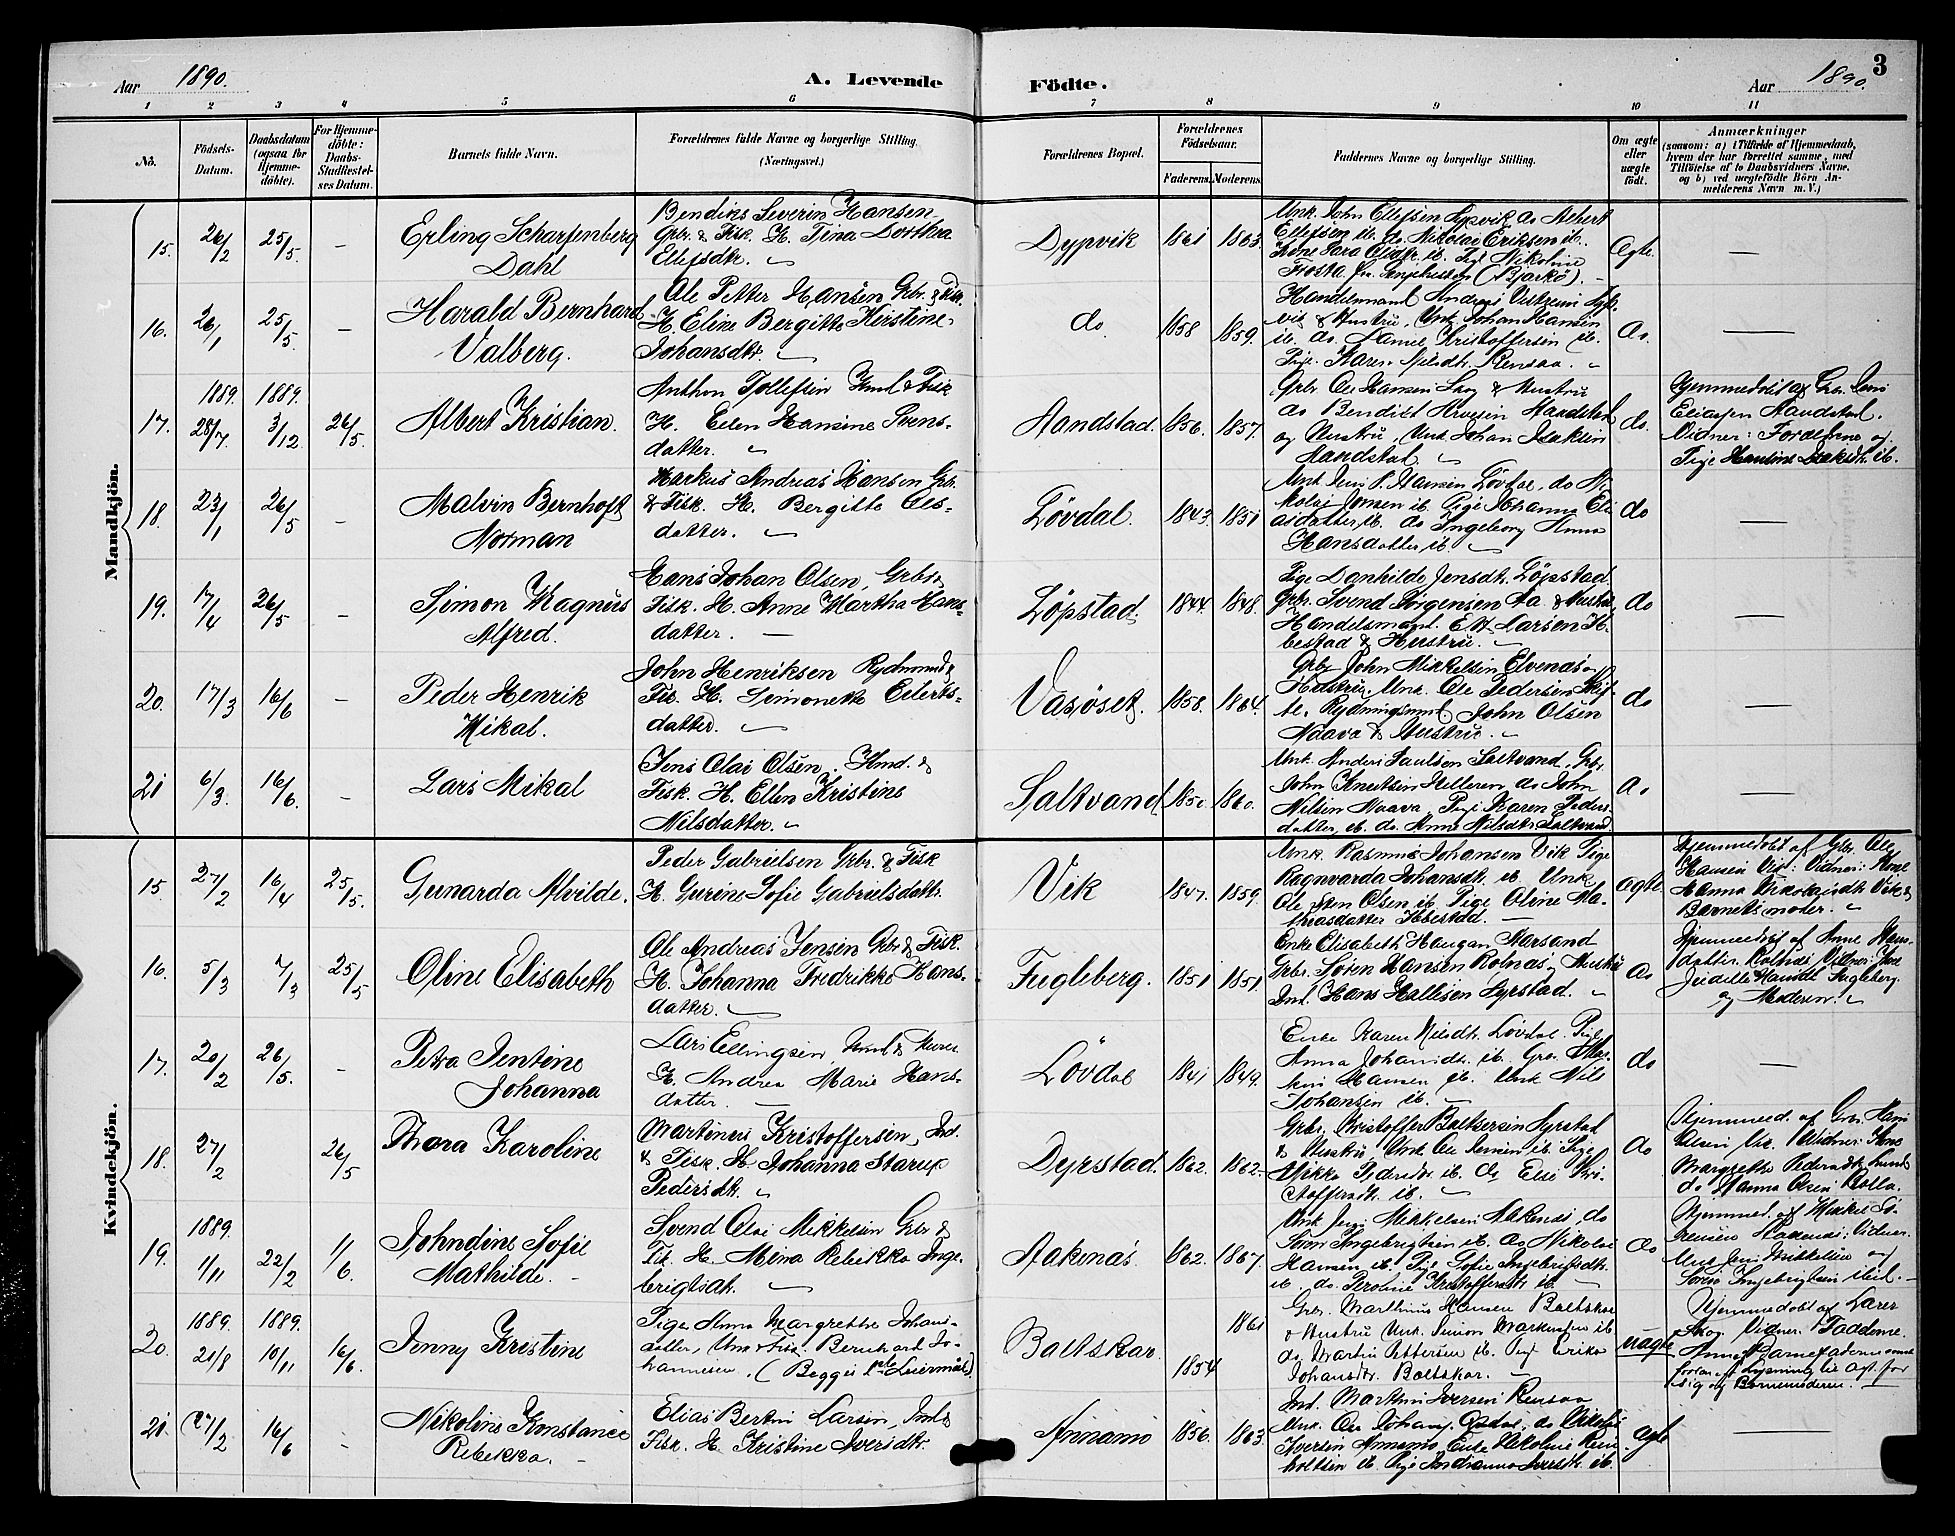 Aar 1890. A. Levende Födte. Aar 1890. 3
1 2 3 4 5 6 7 8 9 10 11
No. Födsels-Datum. Daabsdatum (ogsaa for Hjemme-döbte). For Hjemme-döbte: Daabs-Stadfæstel-ses Datum. Barnets fulde Navn. Forældrenes fulde Navne og borgerlige Stilling. (Næringsvei.) Forældrenes Bopæl. Forældrenes Födselsaar. Faderens. Moderens. Faddernes Navne og borgerlige Stilling. Om ægte eller uægte födt. Anmærkninger (saasom: a) i Tilfælde af Hjemmedaab, hvem der har forrettet samme, med Tilföielse af to Daabsvidners Navne, og b) ved uægtefödte Börn An-melderens Navn m. V.)
Mandkjön.
15. 26/2 25/5. - Erling Scharfenberg Dahl
Bendiks Severin Hansen
Grbr. & Fisk. H. Tina Dorthea
Ellefsdtr.
Dypvik 1861 1863.
Unk. John Ellefsen Dypvik do Albert
Ellefsen ib. do Nikolai Eriksen ib.
Ægte. —
16. 26/1 25/5. - Harald Bernhard Valberg.
Ole Petter Hansen Grbr. & Fisk.
H. Eline Bergitte Kirstine
Johansdtr.
do. 1858 1859.
Handelsmand Andreas
& Hustru, Unk Johan Hansen
ib. do. Daniel Kristoffersen ib.
Pige. Karen Nilsdtr. Rensaa.
do. —
17. 1889. 28/7 1889. 3/12 26/5. Albert Kristian.
Anthon Tollefsen Inds & Fisk
H. Ellen Hansine Svens-
datter.
Aandstad. 1856. 1857.
Grbr. Ole Hansen Skog & Hustru
do Bendikt
og Hustru, Unk. Johan Isaksen
Aandstad.
do.
Hjemmedöbt af Grbr.
Eliassen Aandstad.
Vidner: Forældrene og
Pige Hansine Isaksdtr. ib.
18. 23/1 26/5 - Malvin Bernhoft Norman
Markus Andreas Hansen Grbr.
& Fisk. H. Bergitte Ols-
datter.
Lövdal. 1843. 1851
Unk Jens P. Hansen Lövdal, do Ni-
kolai Jensen ib Pige Johanna Eli-
asdatter ib. do Ingeborg Anna
Hansdatter ib.
do —
19. 17/4 26/5 - Simon Magnus Alfred.
Hans Johan Olsen, Grbr &
Fisk. H. Anne Martha Hans-
datter. —
Löpstad. 1844. 1848.
Pige Danhilde Jensdtr. Löpstad.
Grbr. Svend Jörgensen Aa & Hustru,
Handelsmand. E. Larsen H-
bestad & Hustru.
do —
20. 17/3 16/6 - Peder Henrik Mikal.
John Henriksen Rydnmd &
Fisk. H. Simonette Eilerts-
datter.
Vasöset. 1858. 1864.
Grbr John Mikkelsen Elvenes og
Hustru. Unk. Ole Pedersen
Rydningsmd John Olsen
Naava & Hustru.
do —
21 6/3. 16/6. - Lars Mikal
Jens Olai Olsen. Ind. &
Fisk. H. Ellen Kristine
Nilsdatter.
Saltvand 1850. 1860.
Unk. Anders Paulsen Saltvand, Grbr.
John Knutsen Helleren do John
Nilsen Naava, Pige Karen Peders-
datter, ib. do. Anna Nilsdtr. Saltvand
do —
Kvindekjön.
15. 27/2 16/4 25/5. Gunarda Alvilde.
Peder Gabrielsen Grbr. & Fisk
H. Gurine Sofie Gabrielsdatter.
Vik 1847. 1859.
Unk. Rasmus Johansen Vik Pige
Ragnvarda Johansdtr. ib Unk
Ole Sten Olsen ib. Pige Oline Ma-
thiasdatter Ibestad. —
Ægte
Hjemmedöbt af Grbr. Ole
Hansen Vik: Vidner: Kone
Hanna Nikolaisdtr. Vik &
Barnets moder.
16. 5/3 7/3 25/5 Oline Elisabeth
Ole Andreas Jensen Grbr & Fisk.
H. Johanna Fredrikke Hans-
datter.
Fugleberg. 1851 1851.
Enke Elisabeth Haugan
Grbr. Sören Hansen Rolnes & Hustru
Ind. Hans Hallesen Dyrstad.
do
Hjemmedöbt af Anne Hans-
datter Rolnes Vidner:
Judithe Fugleberg
og Moderen.
17. 20/2 26/5. - Petra Jentine Johanna
Lars Ellingsen, Inds & Murer
H. Andrea Marie Hans-
datter. —
Lövdal 1841 1849.
Enke Karen Nilsdtr. Lövdal. Pige
Anna Johansdtr. ib. Grbr. Mar-
Hansen ib. Unk Nils
Johansen ib.
do —
18. 27/2 26/5 Thora Karoline
Martinus Kristoffersen, Ind.
& Fisk. H. Johanna Starup
Pedersdtr.
Dyrstad. 1862. 1862.
Grbr. Kristoffer Baltsersen Dyrstad
& Hustru,
Pedersdtr. ib. do Else Kri-
stoffersdtr. ib.
do
Hjemmed. af Grbr. Hans
Olsen Vik. Vidner: Kone
Margrethe Pedersdtr. Lund
do Hanna Olsen Rolla.
19. 1889. 1/11 22/2 1/6. Johndine Sofie Mathilde. -
Svend Olai Mikkelsen Grbr &
Fisk. H. Mina Rebekka Inge-
brigtsdtr.
Aakenæs. 1862. 1867.
Unk Jens Mikkelsen Aakenæs, do
Sören Ingebrigtsen ib. do Nikolai
Hansen ib. Pige Sofie Ingebrigtsdtr.
ib. do Peroline Kristoffersdtr ib.
do
Hjemmed. af Mikkel
Aakenæs: Vidner:
Unk Jens Mikkelsen og
Sören Ingebrigtsen ibid. —
20. 1889. 21/8 1889. 10/11 16/6. Jenny Kristine
Pige Anna Margrethe Johans-
datter, Unk & Fisk. Bernhard Jo-
hannesen. (Begges 1ste Leiermaal).
Baltskar. 1854 1861
Grbr. Marthinus Hansen Baltskar
& Hustru Unk. Simon Markussen ib
do Martin Pettersen ib. Pige Erika
Johansdtr. Baltskar.
uægte
Hjemmedöbt af Lærer
Skog. Vidner: Fadderne.
Anm. Barnefaderen
sig og Barnemoderen. —
21. 27/2 16/6 - Nikoline Konstance Rebekka. -
Elias Bertin Larsen, Inds &
Fisk. H. Kristine Iversdtr.
Annamo 1856. 1863.
Ind. Marthin Iversen Rensaa
Unk. Ole Johan Opdal, do Nikolai
Iversen Annamo Enke Nikoline Rein-
holtsen ib. Pige Indianna Iversdtr. ib.
Ægte —